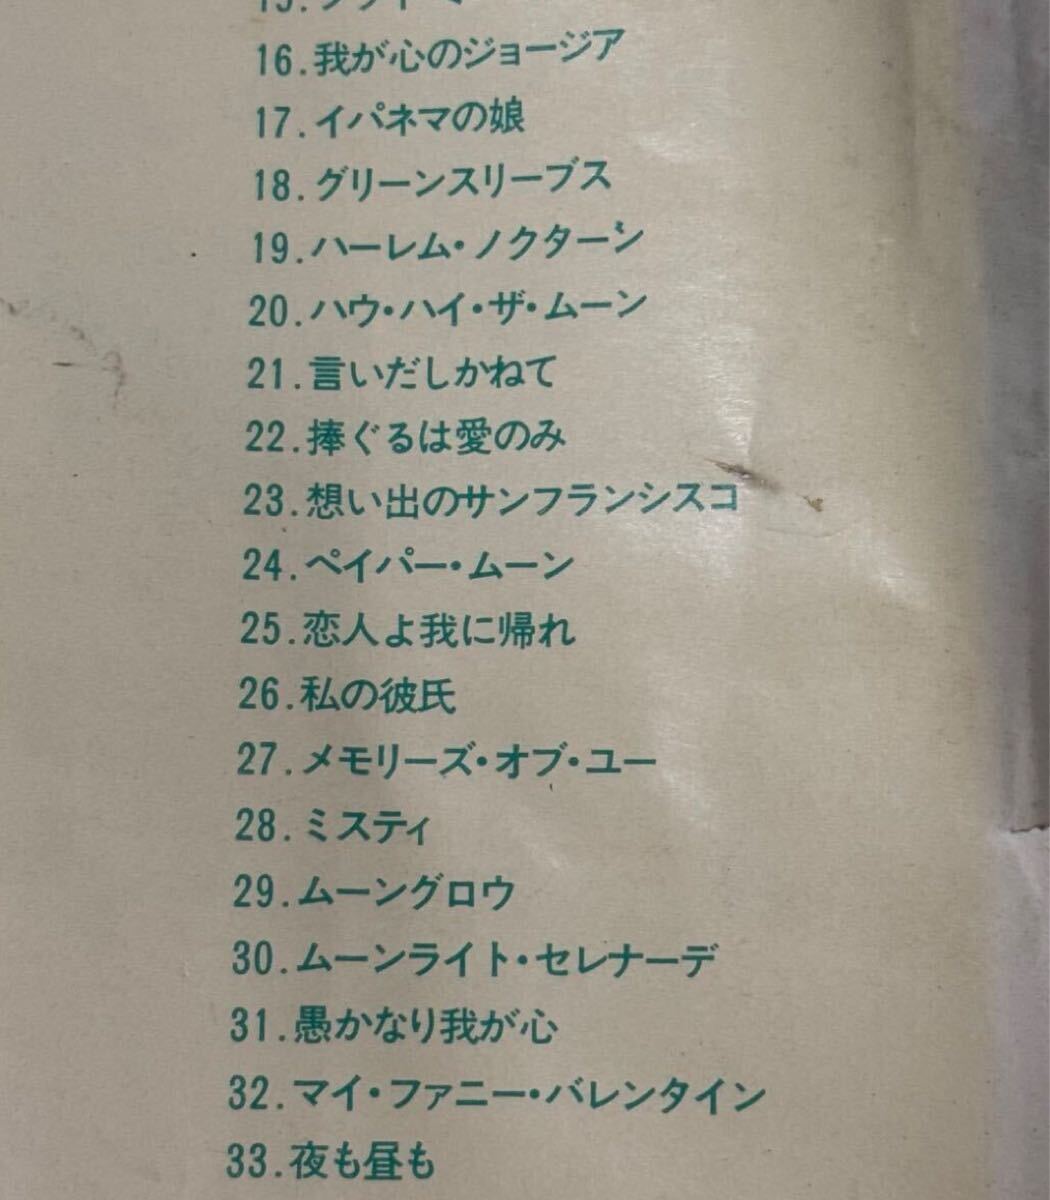 16.我が心のジョージア
17.イパネマの娘
18.グリーンスリーブス
19.ハーレム・ノクターン
20.ハウ・ハイ・ザ・ムーン
21.言いだしかねて
22.捧ぐるは愛のみ
23.想い出のサンフランシスコ
24.ペイパー・ムーン
25.恋人よ我に帰れ
26.私の彼氏
27.メモリーズ・オブ・ユー
28.ミスティ
29.ムーングロウ
30.ムーンライト・セレナーデ
31.愚かなり我が心
32.マイ・ファニー・バレンタイン
33.夜も昼も